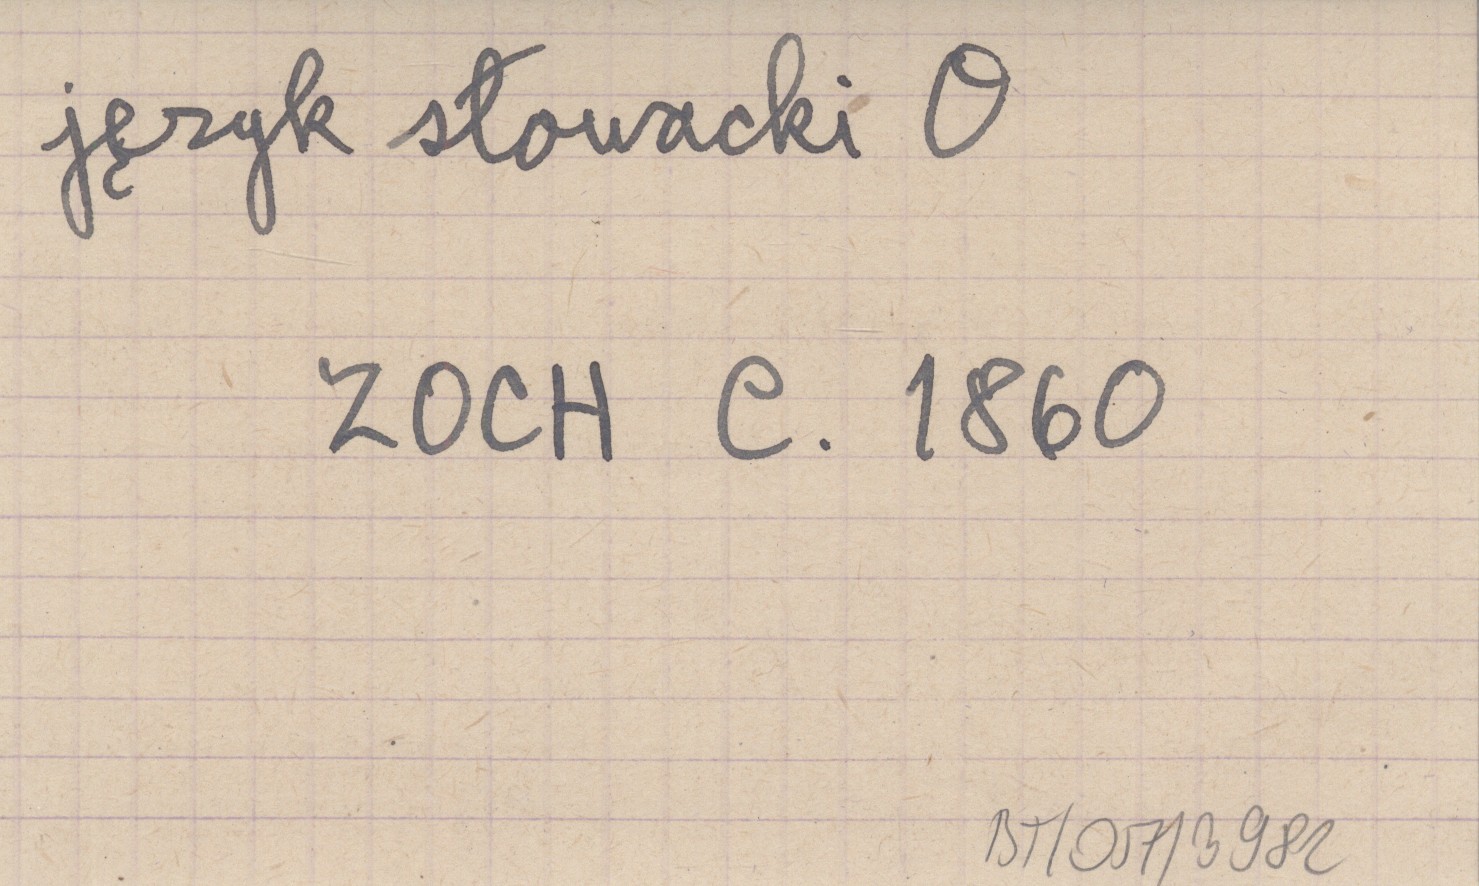 język słowacki O
ZOCH C. 1860
BT/057/3982